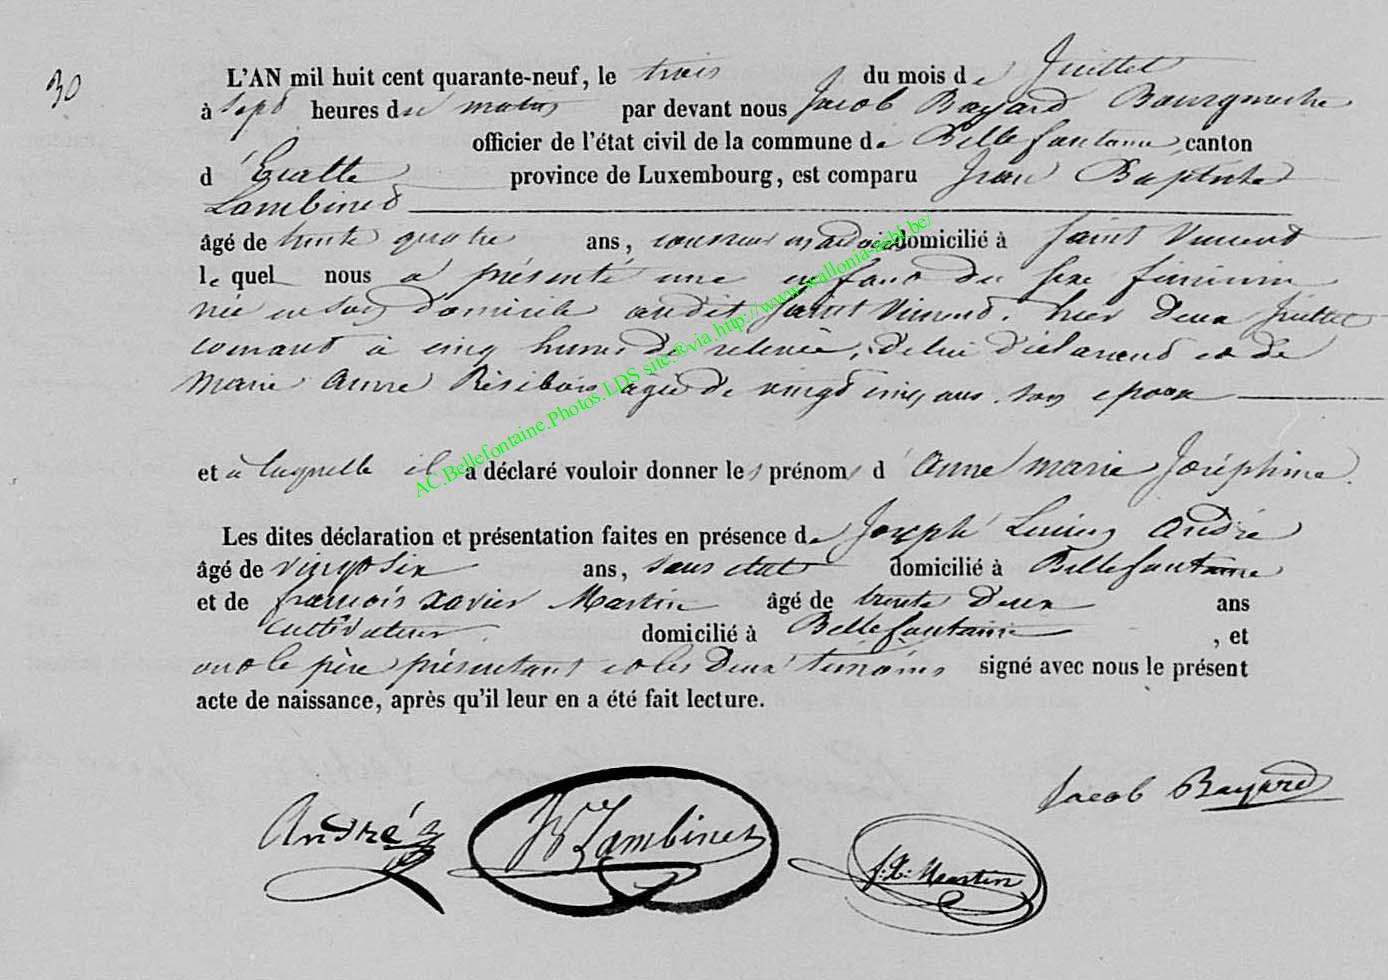 30
L'AN mil huit cent quarante-neuf, le trois du mois de Juillet
à sept heures du matin par devant nous Jacob Bayard Bourgmestre
officier de l'état civil de la commune de Bellefontaine, canton
d'Étalle province de Luxembourg, est comparu Jean Baptiste
Lambinet
âgé de trente quatre ans, domicilié à Saint Vincent
lequel nous a présenté une enfant du sexe féminin
née en son domicile audit Saint Vincent, hier deux Juillet
courant à cinq heures de relevée, de lui déclarant et de
Marie Anne Résibois âgée de vingt cinq ans, son épouse
et à laquelle il a déclaré vouloir donner les prénoms d Anne Marie Joséphine
Les dites déclaration et présentation faites en présence de Joseph Lucien André
âgé de vingt six ans, sans état domicilié à Bellefontaine
et de françois Xavier Martin âgé de trente deux ans
cultivateur domicilié à Bellefontaine, et
ont le père présentant et les deux témoins signé avec nous le présent
acte de naissance, après qu'il leur en a été fait lecture.
Jacob Bayard
André
JB Lambinet
f: X: Martin
AC.Bellefontaine.Photos.LDS site.®via http://www.wallonia-asbl.be/